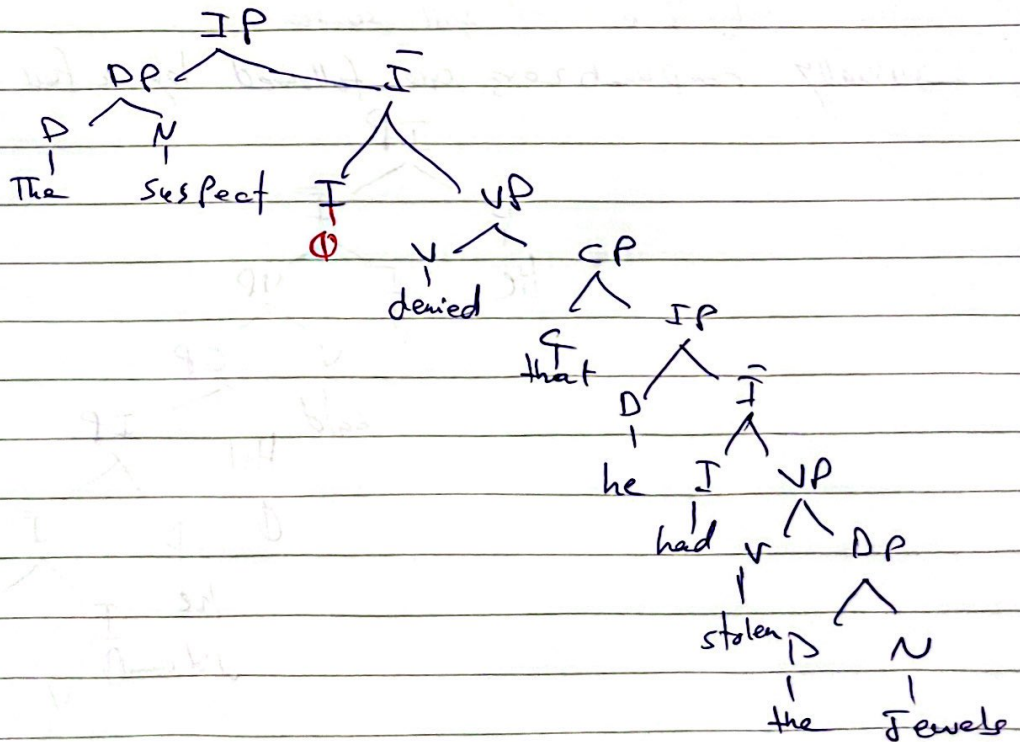 IP
DP Ī
D N
The suspect I VP
Φ V CP
denied
C IP
that
D Ī
he I VP
had V DP
stolen D N
the Jewels